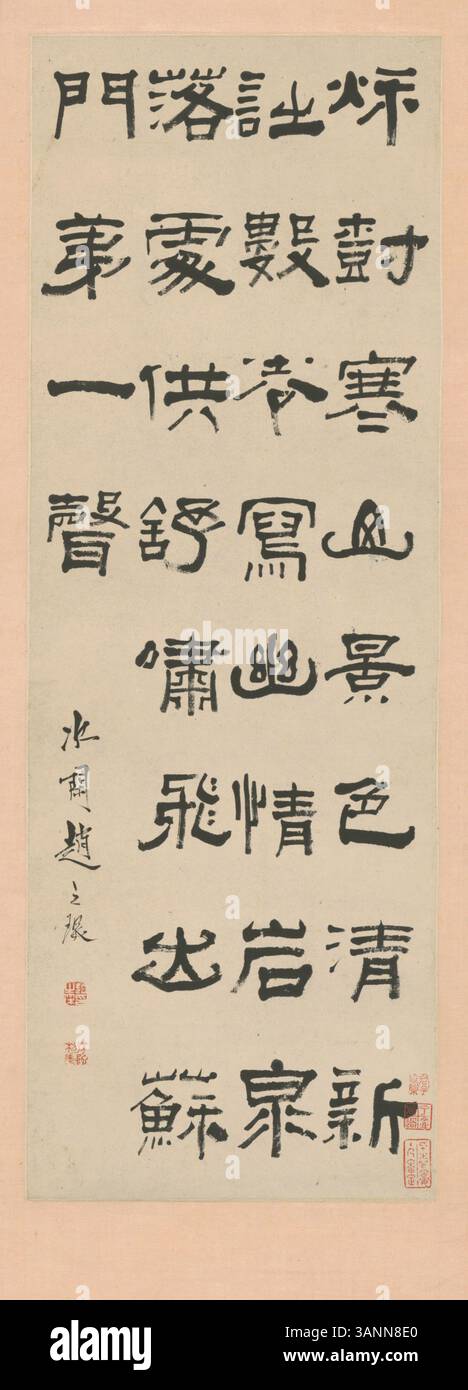 秌對寒山景色清新
詩數寫幽情岩泉
落處供舒嘯飛出蘇
門第一聲
次閒趙之琛
alamy
Image ID: 3ANN8E0
www.alamy.com